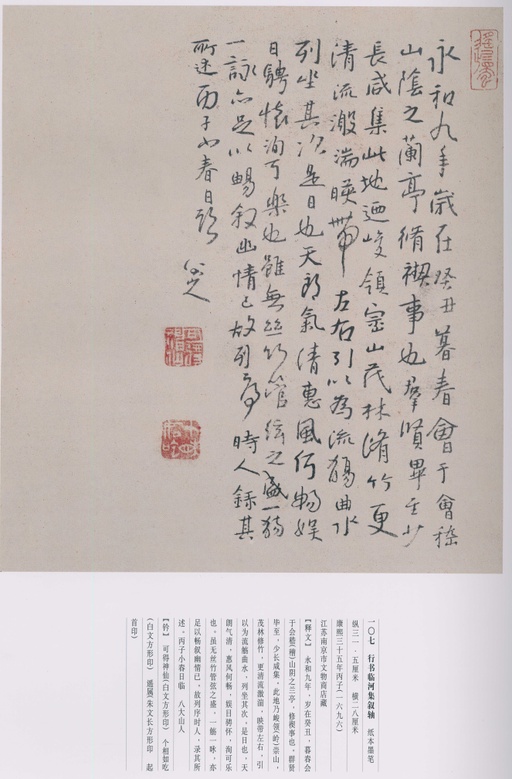 永和九年歲在癸丑暮春會于會稽
山陰之蘭亭脩禊事也羣賢畢至少
長咸集此地迺峻領崇山茂林脩竹更
清流激湍暎帶左右引以為流觴曲水
列坐其次是日也天朗氣清惠風何暢娛
目騁懷洵可樂也雖無絲竹管絃之盛一觴
一詠亦足以暢敘幽情已故列序時人錄其
所述丙子小春日臨
八大山人
一〇七 行书临河集叙轴 纸本墨笔
纵三一·五厘米 横二八厘米
康熙三十五年丙子（一六九六）
江苏南京市文物商店藏
【释文】 永和九年，岁在癸丑，暮春会
于会嵇（稽）山阴之兰亭，修禊事也。群贤
毕至，少长咸集，此地乃峻领（岭）崇山，
茂林修竹，更清流激湍，映带左右，引
以为流觞曲水，列坐其次，是日也，天
朗气清，惠风何畅，娱目骋怀，洵可乐
也。虽无丝竹管弦之盛，一觞一咏，亦
足以畅叙幽情已。故列序时人，录其所
述。丙子小春日临 八大山人
【钤】 可得神仙（白文方形印） 个相如吃
（白文方形印） 遥属（朱文长方形印 起
首印）